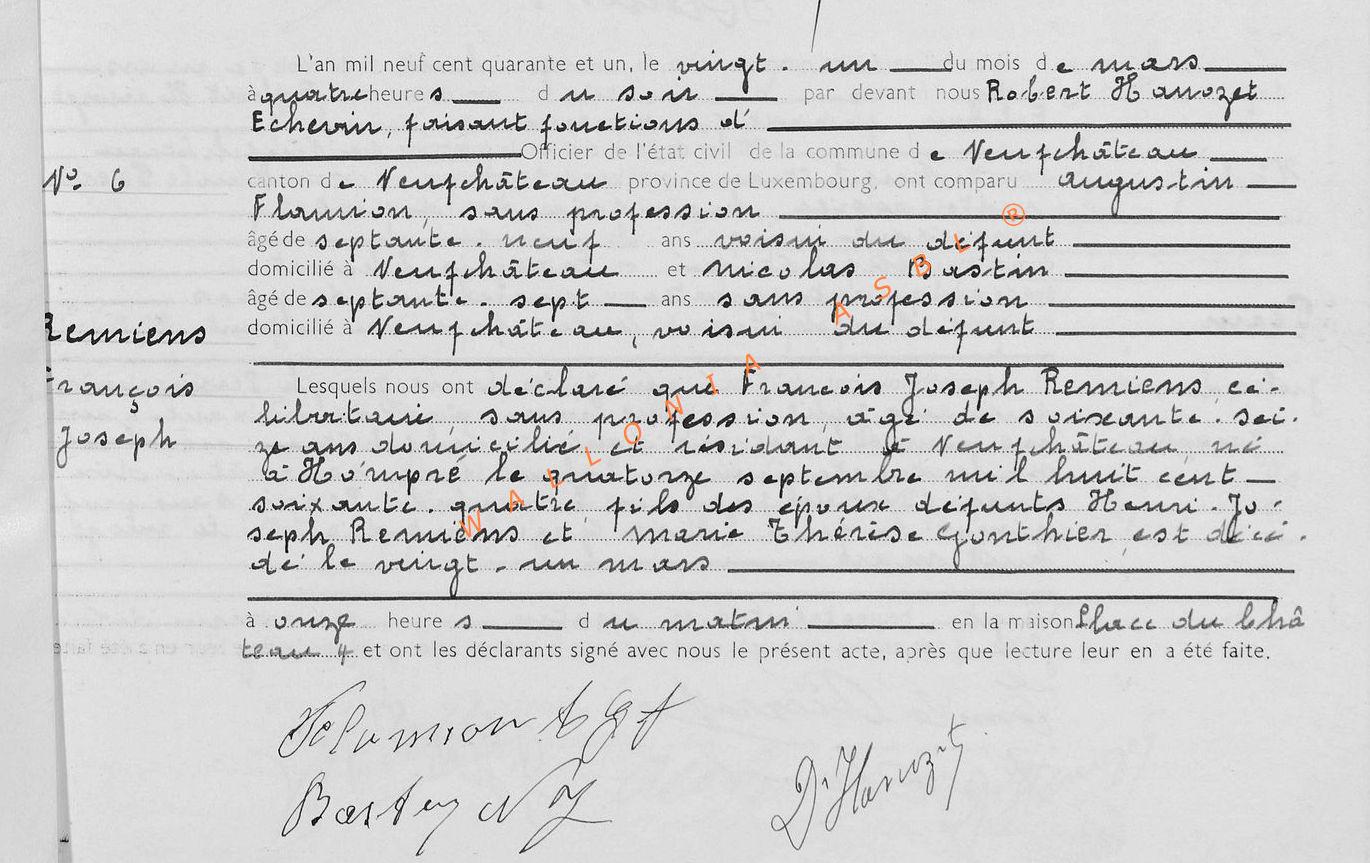 L'an mil neuf cent quarante et un, le vingt-un du mois de mars
à quatre heures du soir par devant nous Robert Hanozet
Echevin, faisant fonctions d'
Officier de l'état civil de la commune de Neufchâteau
N° 6
canton de Neufchâteau province de Luxembourg, ont comparu Augustin
Flamion, sans profession
âgé de septante-neuf ans voisin du défunt
domicilié à Neufchâteau et Nicolas Bastin
âgé de septante-sept ans sans profession
Remiens
domicilié à Neufchâteau, voisin du défunt
François
Joseph
Lesquels nous ont déclaré que François Joseph Remiens, cé-
libataire, sans profession, âgé de soixante-sei-
ze ans domicilié et résidant à Neufchâteau, né
à Hompré le quatorze septembre mil huit cent
soixante-quatre, fils des époux défunts Henri-Jo-
seph Remiens et Marie Thérèse Gonthier, est décé-
dé le vingt-un mars
à onze heures du matin en la maison Place du Châ
teau 4 et ont les déclarants signé avec nous le présent acte, après que lecture leur en a été faite.
WALLONIA ASBL ®
Flamion
Dr Hanozet